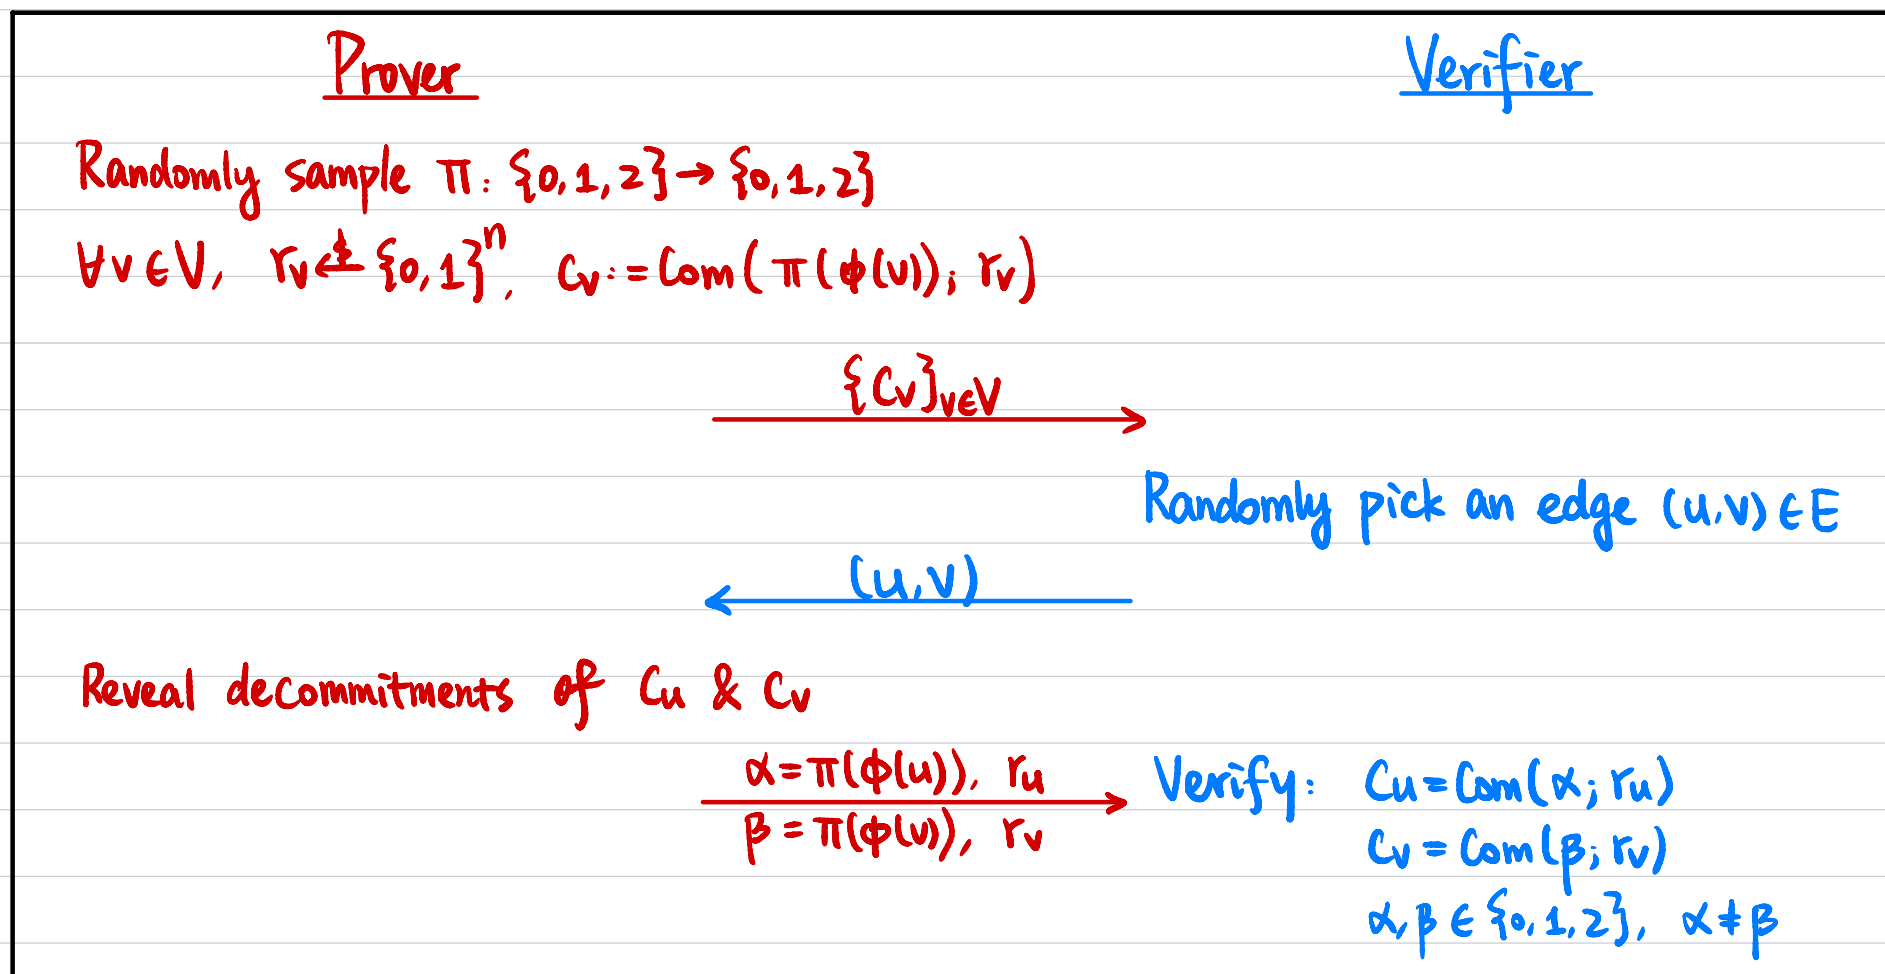 Prover
Verifier
Randomly sample π: {0,1,2}→{0,1,2}
∀v∈V, r_v ←$ {0,1}^n, C_v := Com(π(φ(v)); r_v)
{C_v}_{v∈V}
Randomly pick an edge (u,v)∈E
(u,v)
Reveal decommitments of C_u & C_v
α=π(φ(u)), r_u
β=π(φ(v)), r_v
Verify: C_u=Com(α; r_u)
C_v=Com(β; r_v)
α,β∈{0,1,2}, α≠β